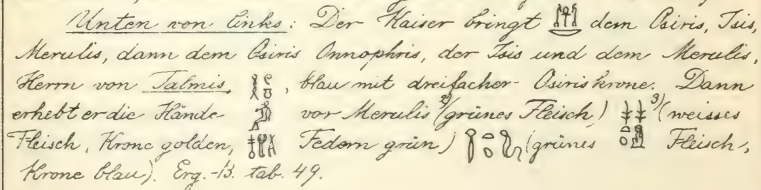 Unten von links: Der Kaiser bringt dem Osiris, Isis,
Merulis, dann dem Osiris Onnophris, der Isis und dem Merulis,
Herrn von Talmis, blau mit dreifacher Osiriskrone. Dann
erhebt er die Hände vor Merulis 2) (grünes Fleisch) 3) (weisses
Fleisch, Krone golden, Federn grün) (grünes Fleisch,
Krone blau). Erg.-B. tab. 49.